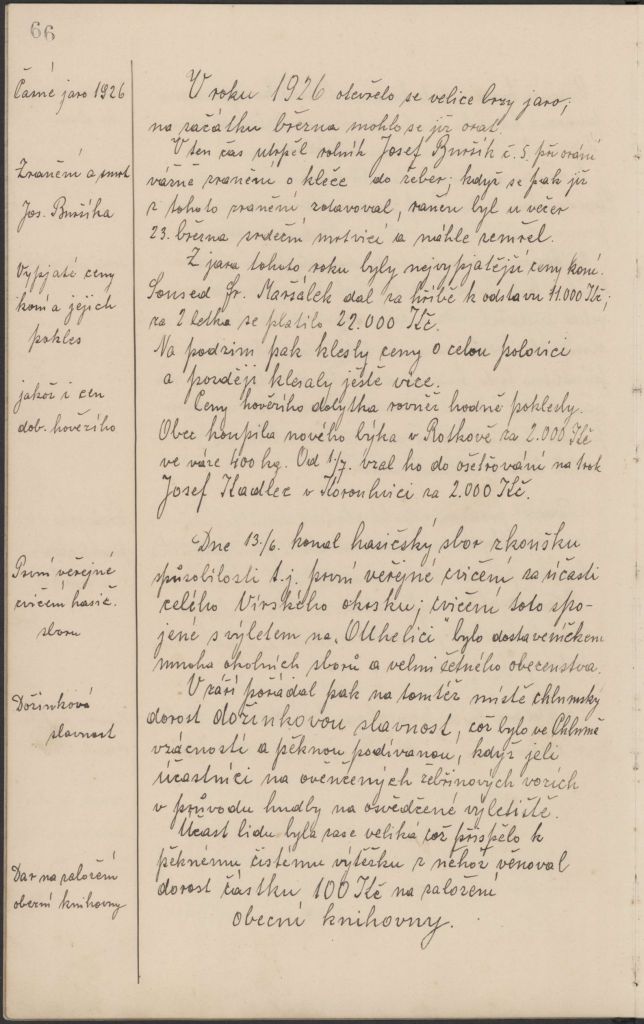 66
Časné jaro 1926
V roku 1926 otevřelo se velice brzy jaro;
na začátku března mohlo se již orat.
V ten čas utrpěl rolník Josef Buršík č. 5. při orání
Zranění a smrt
vážné zranění o kleče do žeber; když se pak již
Jos. Buršíka
z tohoto zranění zotavoval, raněn byl u večer
23. března srdeční mrtvicí a náhle zemřel.
Z jara tohoto roku byly nejvypjatější ceny koní.
Vypjaté ceny
koní a jejich
pokles
Soused Fr. Maršálek dal za hříbě k odstavu 11.000 Kč;
za 2 letka se platilo 22.000 Kč.
Na podzim pak klesly ceny o celou polovici
a později klesaly ještě více.
jakož i cen
dob. hovězího
Ceny hovězího dobytka rovněž hodně poklesly.
Obec koupila nového býka v Rotkově za 2.000 Kč
ve váze 400 kg. Od 1/7. vzal ho do ošetřování na rok
Josef Kadlec v Korouhvici za 2.000 Kč.
Dne 13./6. konal hasičský sbor zkoušku
První veřejné
cvičení hasič.
sboru
způsobilosti t.j. první veřejné cvičení za účasti
celého Vírského okrsku; cvičení toto spo-
jené s výletem na „Ouhelici" bylo dostaveníčkem
mnoha okolních sborů a velmi četného obecenstva.
V září pořádal pak na tomtéž místě chlumský
Dožínková
slavnost
dorost dožínkovou slavnost, což bylo ve Chlumě
vzácností a pěknou podívanou, když jeli
účastníci na ověnčených žebřinových vozích
v průvodu hudby na osvědčené výletiště.
Účast lidu byla zase veliká což přispělo k
Dar na založení
obecní knihovny
pěknému čistému výtěžku z něhož věnoval
dorost částku 100 Kč na založení
obecní knihovny.